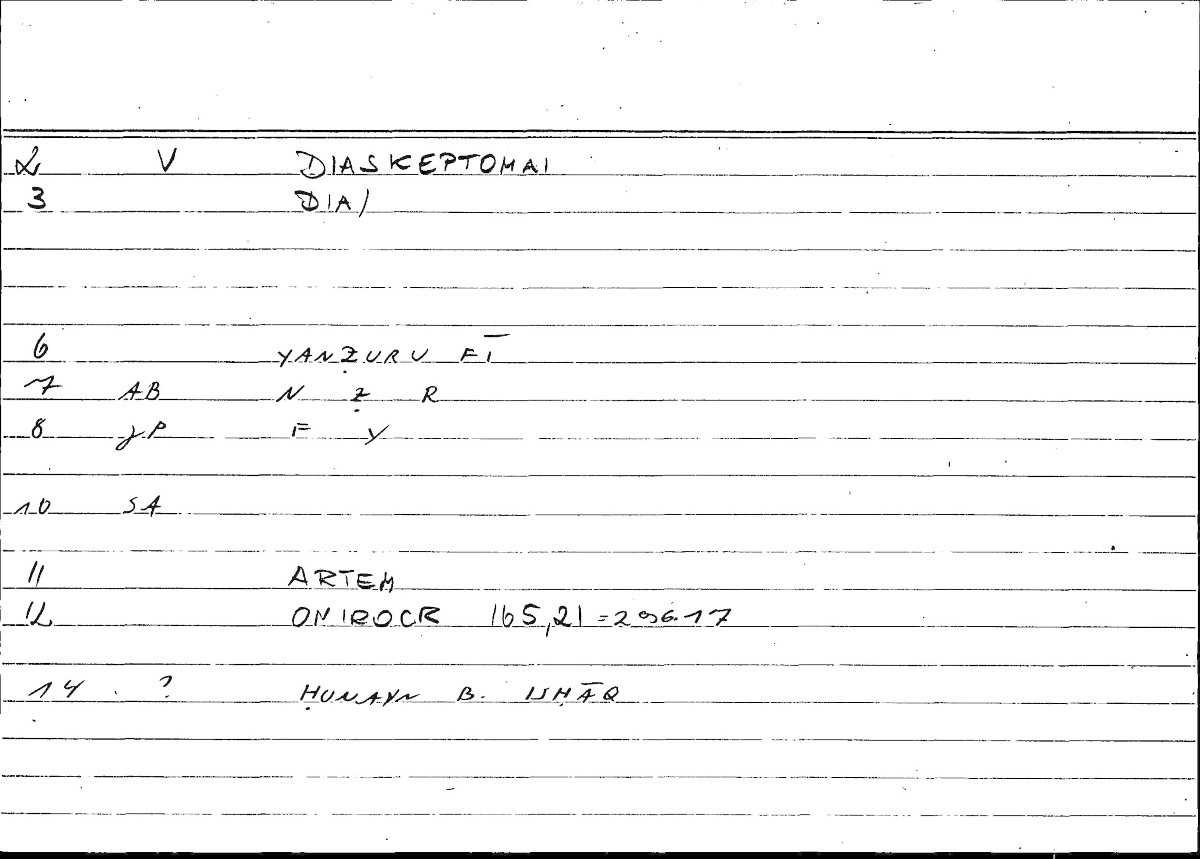 2 V DIASKEPTOMAI
3 DIA/
6 YANẒURU FĪ
7 AB N Ẓ R
8 JP F Y
10 SA
11 ARTEM
12 ONIROCR 165,21=296.17
14 ? ḤUNAYN B. ISḤĀQ